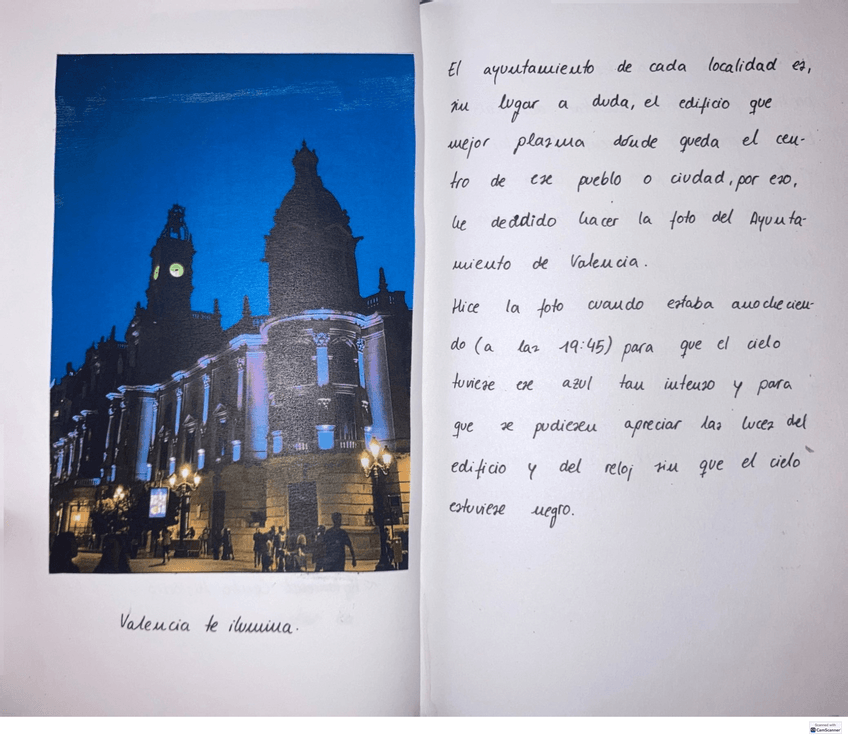 El ayuntamiento de cada localidad es,
sin lugar a duda, el edificio que
mejor plasma dónde queda el cen-
tro de ese pueblo o ciudad, por eso,
he decidido hacer la foto del Ayunta-
miento de Valencia.
Hice la foto cuando estaba anochecien-
do (a las 19:45) para que el cielo
tuviese ese azul tan intenso y para
que se pudiesen apreciar las luces del
edificio y del reloj sin que el cielo
estuviese negro.
Valencia te ilumina.
Scanned with
CamScanner